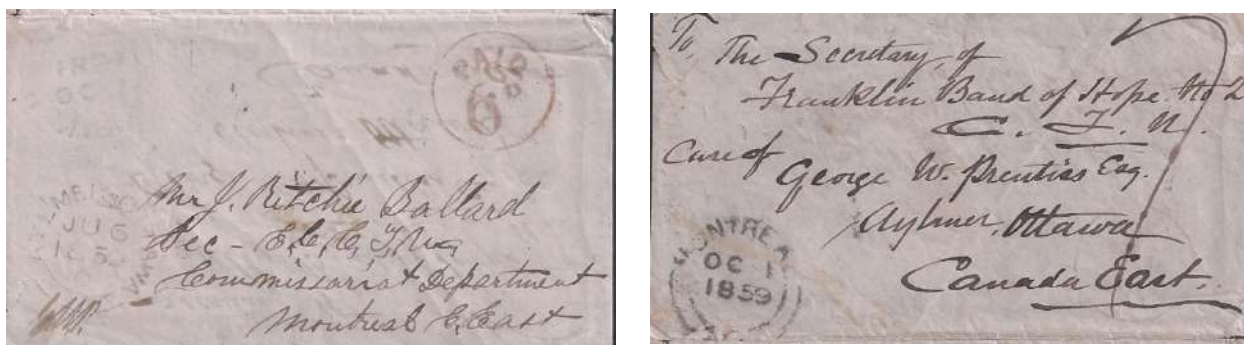 PAID
6D
Mr J. Ritchie Ballard
Sec - E. C. C. T. U.
Commissariat Department
Montreal C. East
JU 6
To, The Secretary, of
Franklin Band of Hope No 2
C. T. U.
Care of
George W. Prentiss Esq.
Aylmer, Ottawa
Canada East.
MONTREA
OC 1
1859